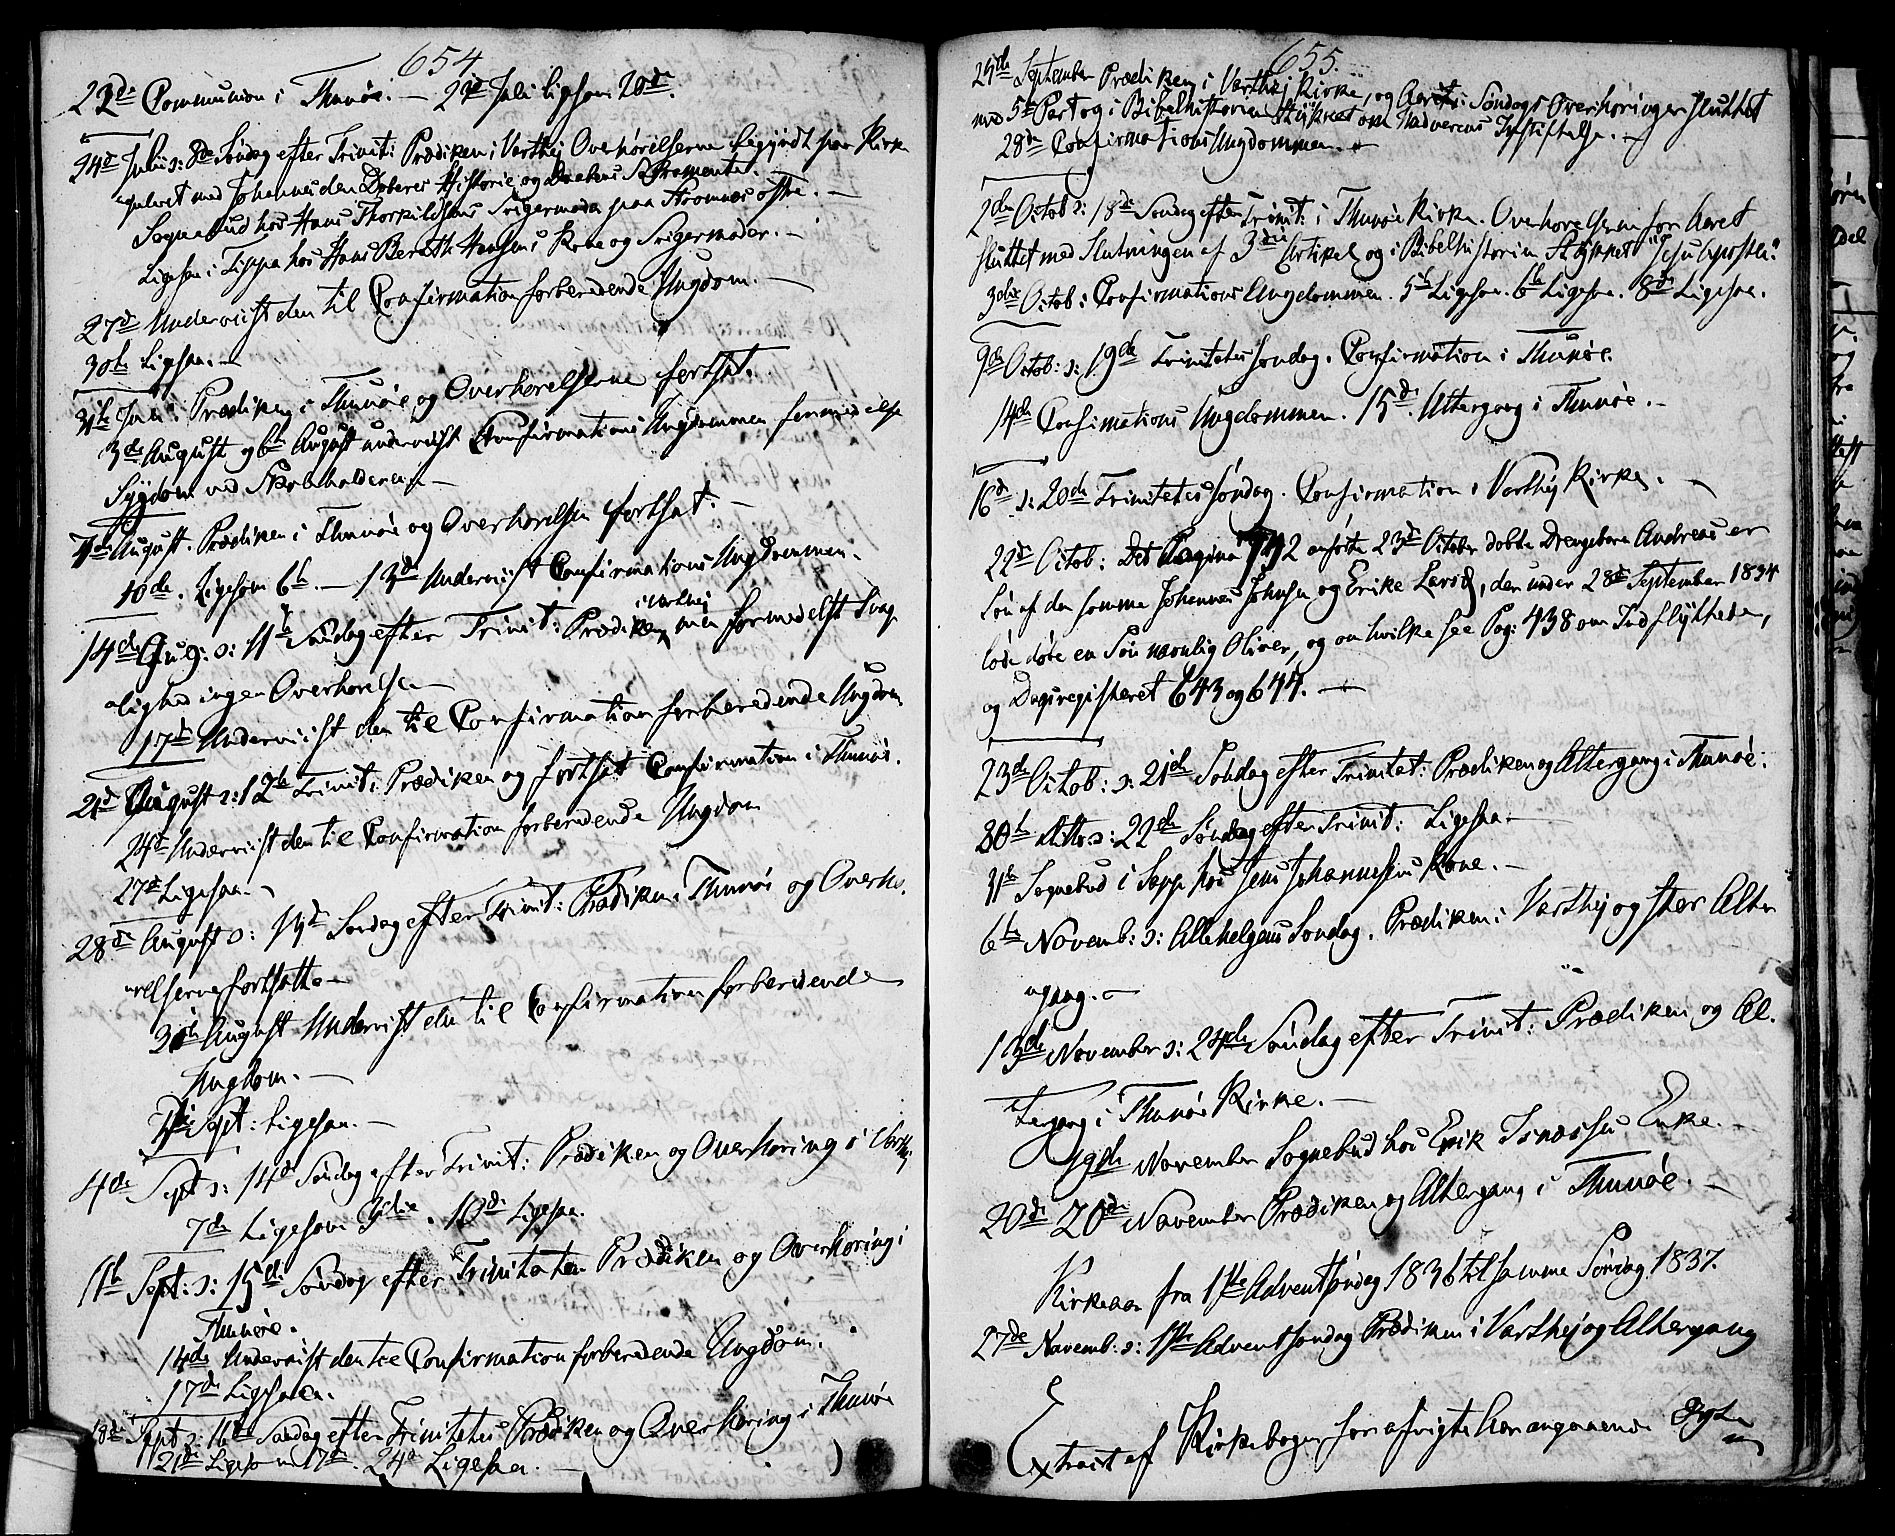 654
23de Communion i Thunøe. — 24de Juli ligesom 20de.
24de Julii ɔ: 8de Søndag efter Triniti Prædiken i Varthej Overhørelserne begyndt paa Kirke
gulvet med Johannes den Døberes Historie og Daabens Sacramente.
Sognebud hos Hans Thorkildsens Svigermoder paa Stromnes østre. —
Ligesaa i Lippa hos Hans Berntth Hansens Kone og Svigermoder. —
27de Underviist den til Confirmation forberedende Ungdom. —
30te Ligesaa. —
31te Juli. Prædiken i Thunøe og Overhørelserne fortsat.
3de August og 6te August underviist Confirmations Ungdommen formedelst
Sygdom ved
7de August. Prædiken i Thunøe og Overhørelsen fortsat. —
10de. Ligesom 6te. — 13de Underviist Confirmations Ungdommen.
i Varthej
14de Aug: ɔ: 11te Søndag efter Trinit: Prædiken men formedelst Svag
elighed ingen Overhørelse —
17de Underviist den til Confirmation forberedende Ungdom
21de August ɔ: 12te Trinit: Prædiken og fortsat Confirmation i Thunøe.
24de Underviist den til Confirmation forberedende Ungdom
27de Ligesaa. —
28de August ɔ: 13de Søndag efter Trinit: Prædiken i Thunøe og Overhø.
relserne fortsatte —
31te August Underviist den til Confirmation forberedende
Ungdom. —
Sept: Ligesaa. —
4de Sept ɔ: 14de Søndag efter Trinit: Prædiken og Overhøring i Varthej
7de Ligesom 3die. 10de Ligesaa.
11te Sept: ɔ: 15de Søndag efter Trinitaten Prædiken og Overhøring i
Thunøe.
14de Underviist den til Confirmation forberedende Ungdom.
17de Ligesaa.
18de Sept ɔ: 16de Søndag efter Trinitatis Prædiken og Overhøring i Thunøe
21de Ligesom 17de. 24de Ligesaa. —
655.
25de September Prædiken i Varthej Kirke, og Aarets Søndags Overhøringer sluttet
med 5te Part og i Bibelhistorien Stykket om Nadverens Indstiftelse. —
28de Confirmations Ungdommen. —
2den Octob ɔ: 18de Søndag efter Trinit: i Thunøe Kirke. Overhørelsen for Aaret
sluttet med Slutningen af 3die Artikel og i Bibelhistorien Stykket "Jesu Apostle."
3die Octob: Confirmations Ungdommen. 5te Ligesaa. 6te Ligesaa. 8de Ligesaa.
9de Octob: ɔ: 19de Trinitatis Søndag. Confirmation i Thunøe.
14de Confirmations Ungdommen. 15de. Altergang i Thunøe. —
16de ɔ: 20de Trinitatis Søndag. Confirmation i Varthej Kirke. —
22de Octob: Det Pagina anførte 23de October døbte Drengebarn Andreas er
Søn af den samme Johannes Johnsen og Erike Larsd, der under 28de September 1834
lode døbe en Søn navnlig Oliver, og om hvilke see Pag: 438 om Indflyttede,
og Dagsregisteret 643 og 644. —
23de Octob: ɔ: 21de Søndag efter Trinitat: Prædiken og Altergang i Thunøe.
30te ditto ɔ: 22de Søndag efter Trinit: Ligesaa —
31te Sognebud i Sopp hos Jens Johannessens Kone. —
6te Novemb: ɔ: Allehelgens Søndag. Prædiken i Varthej og efter Alter
gang. —
13de November ɔ: 24de Søndag efter Trinit: Prædiken og Al.
tergang i Thunøe Kirke. —
19de November Sognebud hos Erik Isaacsens Enke. —
20de 20de November Prædiken og Altergang i Thunøe. —
Kirkeaar fra 1ste Adventsøndag 1836 til samme Søndag 1837.
27de Novemb: ɔ: 1ste Adventsøndag Prædiken i Varthej og Altergang
Extract af Kirkebogen for afvigte Aar angaaende